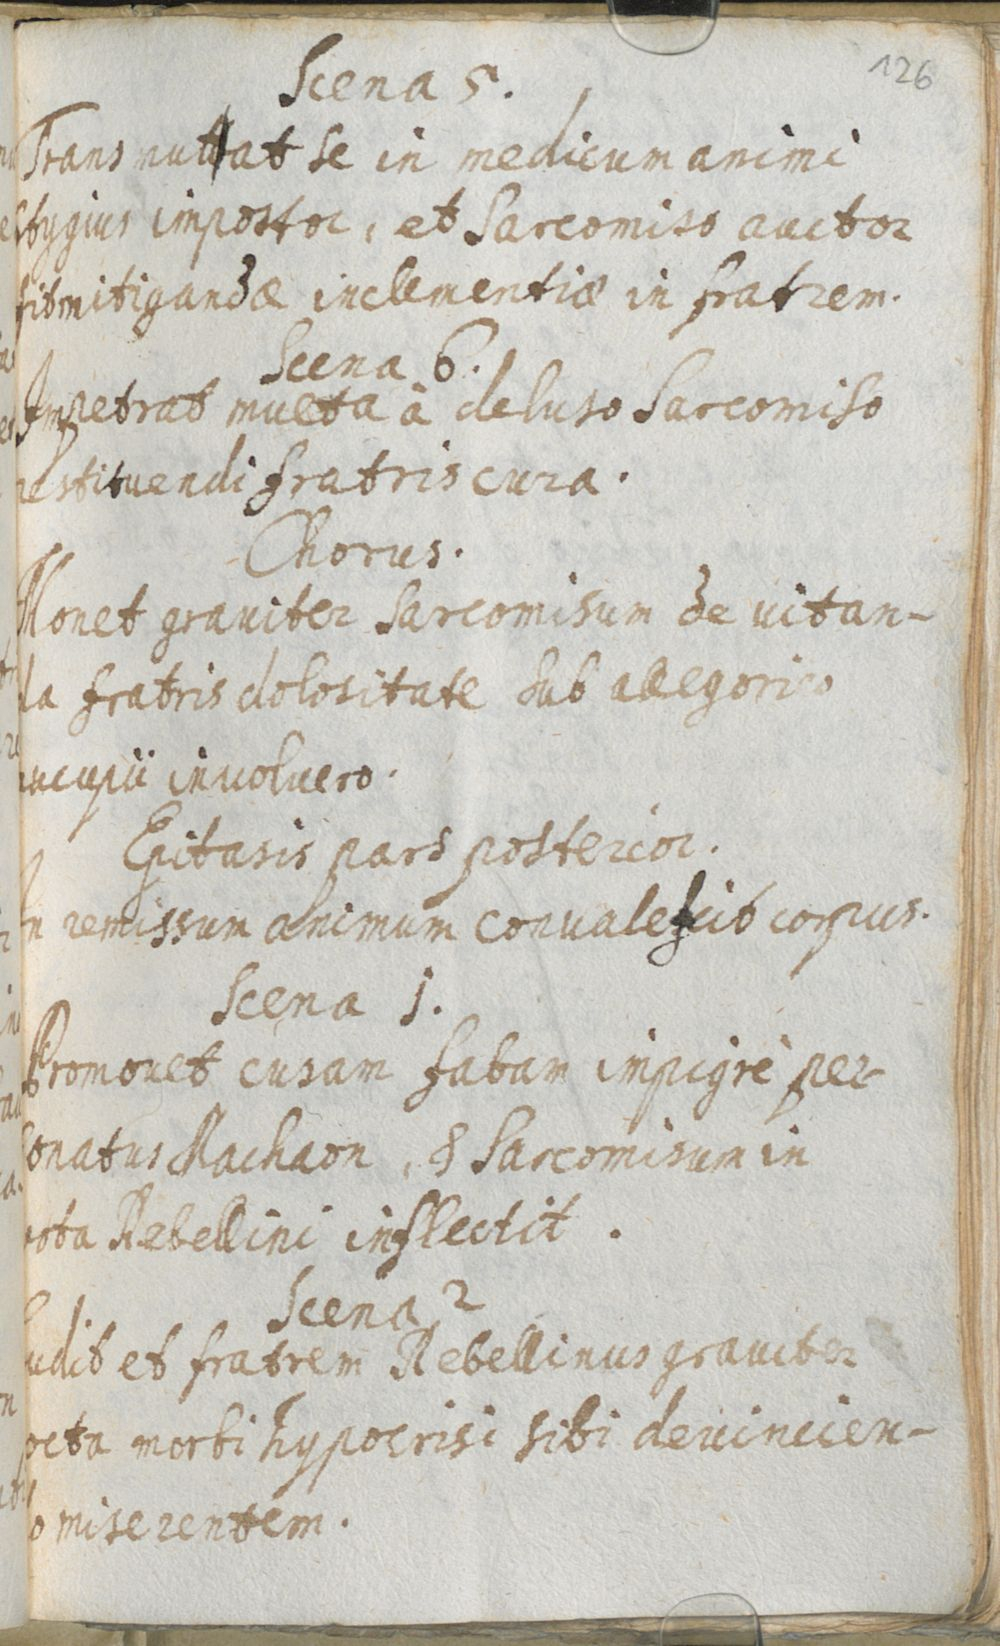 126
Scena 5.
Transmuttat se in medicum animi
stygius impostor, et Sarcomiso auctor
fit mitigandæ inclementiæ in fratrem.
Scena 6.
Impetrat multa à deluso Sarcomiso
restituendi fratris cura.
Chorus.
Monet grauiter Sarcomisum de uitan-
da fratris dolositate sub allegorico
aucupii inuoluero.
Epitasis pars posterior.
In remissum animum conualescit corpus.
Scena 1.
Promouet cusam fabam impigrè per-
sonatus Machaon, & Sarcomisum in
uota Rebellini inflectit.
Scena 2
Ludit et fratrem Rebellinus grauiter
morbi hypocrisi sibi deuincien-
do miserentem.